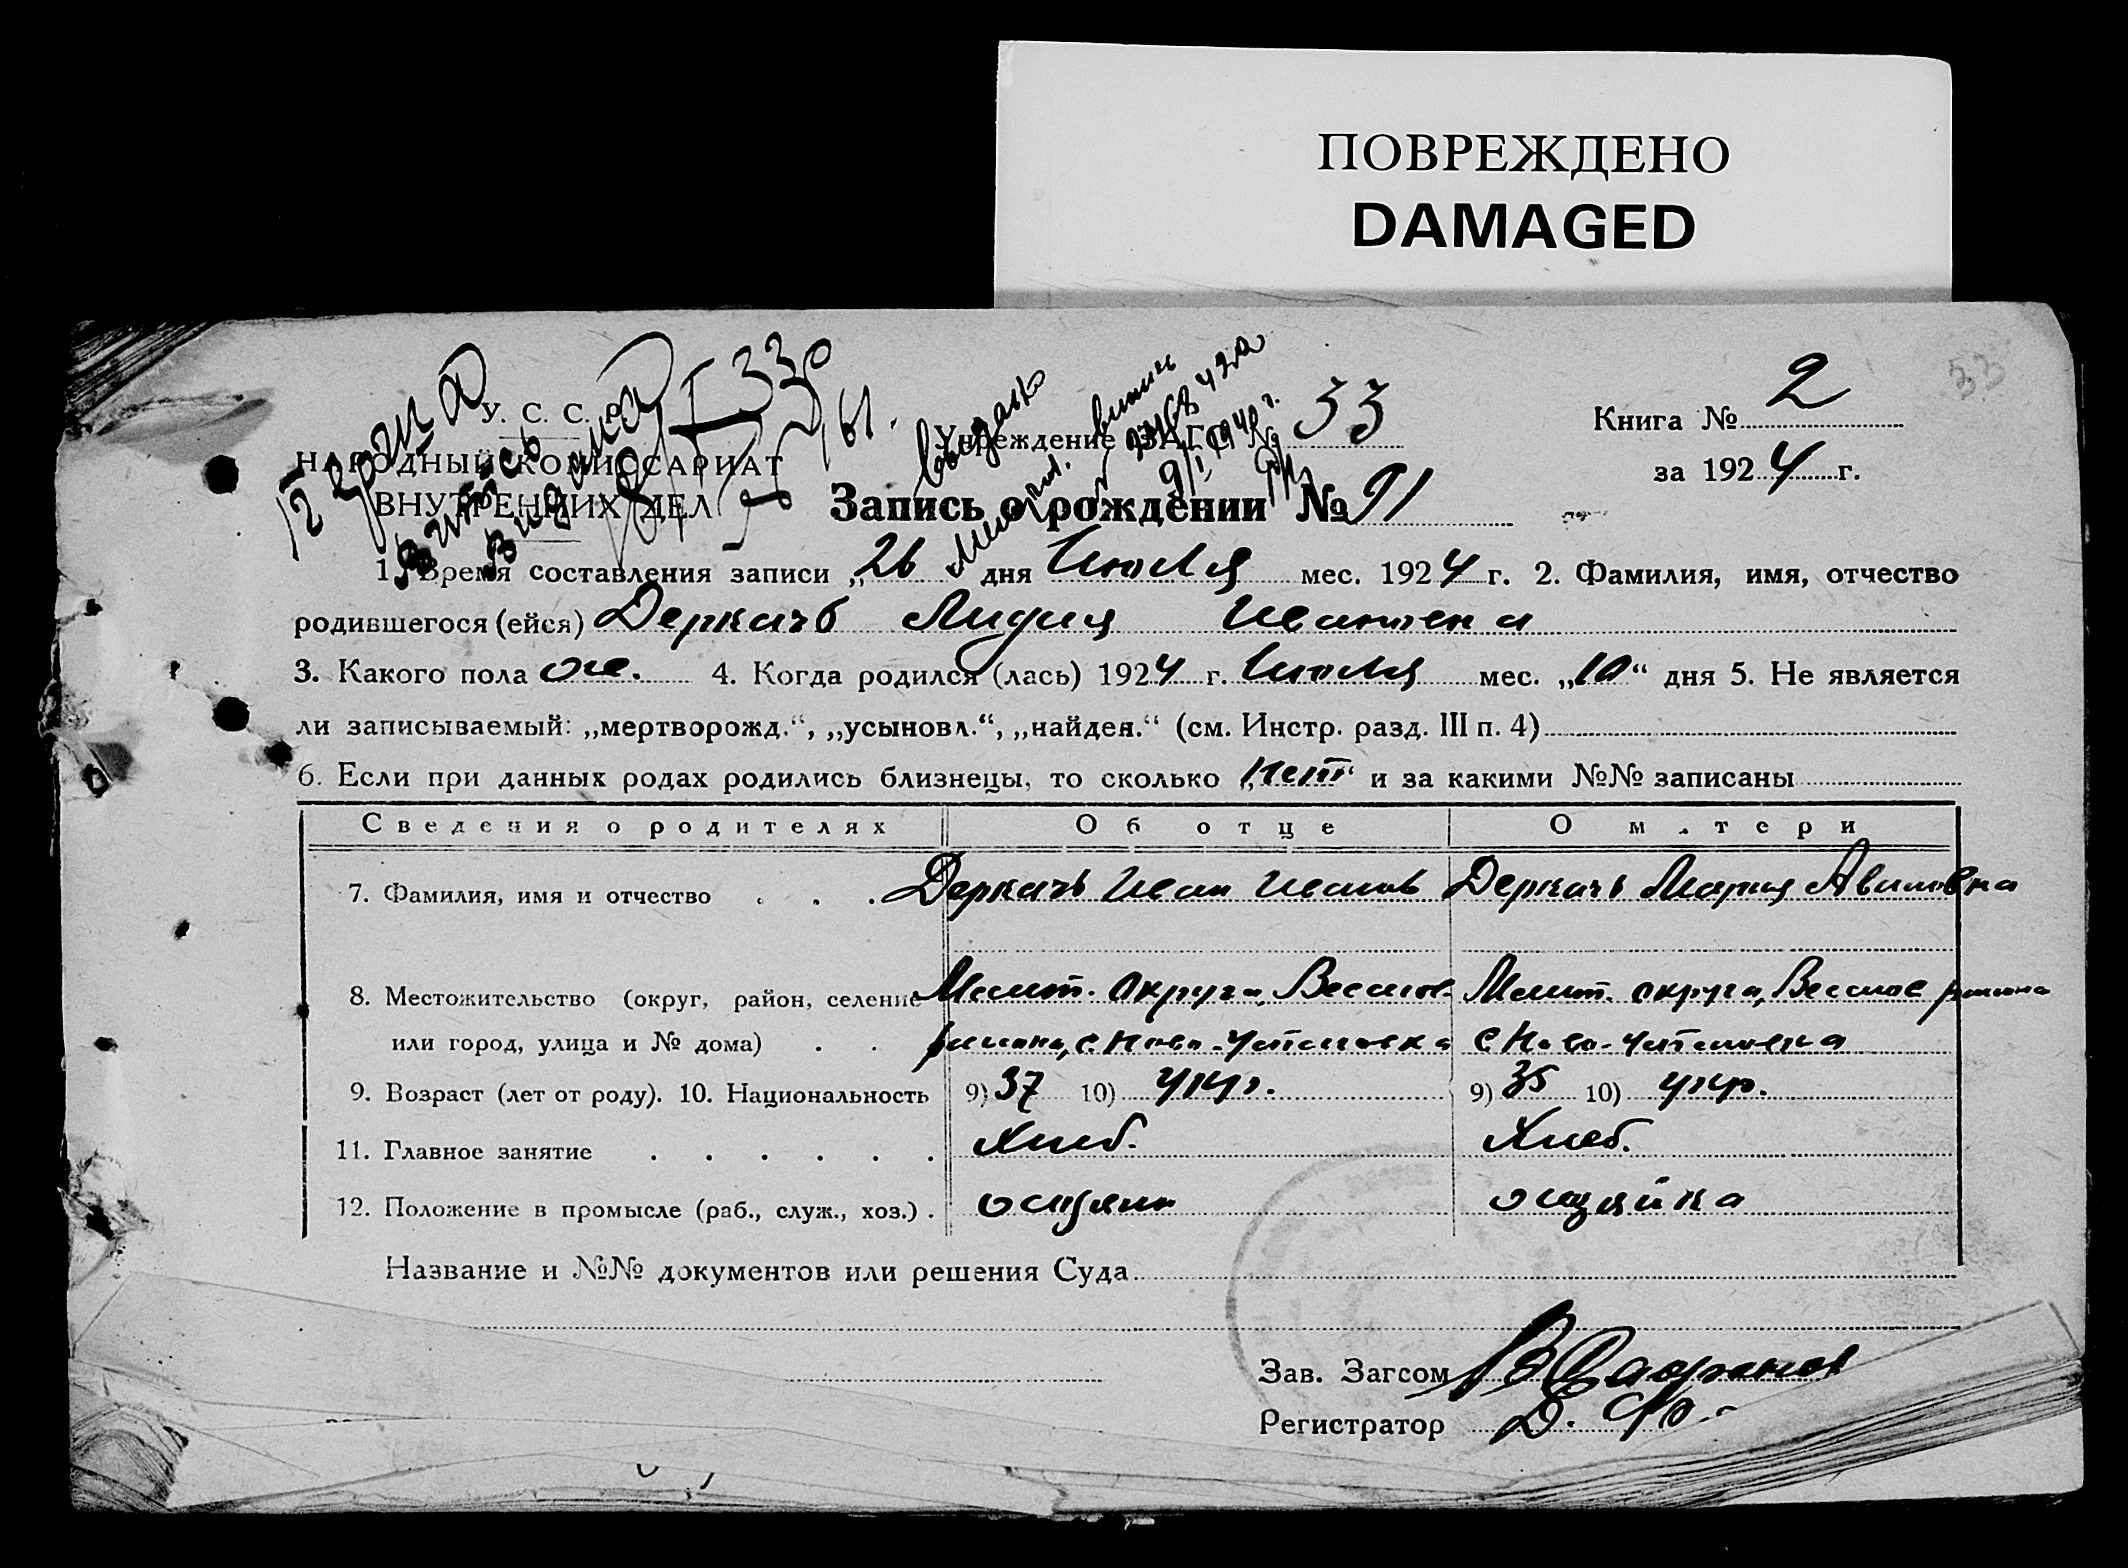 ПОВРЕЖДЕНО
DAMAGED
53
У. С. С. Р.
НАРОДНЫЙ КОМИССАРИАТ
ВНУТРЕННИХ ДЕЛ
Учреждение ЗАГС № 33
Книга № 2
за 1924 г.
Запись о рождении № 91
1. Время составления записи „26 дня Июля мес. 1924 г. 2. Фамилия, имя, отчество
родившегося (ейся) Деркачь Лидия Ивановна
3. Какого пола же. 4. Когда родился (лась) 1924 г. Июля мес. „10“ дня 5. Не является
ли записываемый: „мертворожд.“, „усыновл.“, „найден.“ (см. Инстр. разд. III п. 4)
6. Если при данных родах родились близнецы, то сколько нет и за какими №№ записаны
Сведения о родителях Об отце О матери
7. Фамилия, имя и отчество . . . Деркачь Иван Иванов Деркачь Мария
8. Местожительство (округ, район, селение Мелит. округа, Весёлов. Мелит. округа, Веселов района
или город, улица и № дома) . . района, с. Ново-Успеновка с Ново-Успеновка
9. Возраст (лет от роду). 10. Национальность 9) 37 10) укр. 9) 35 10) укр.
11. Главное занятие . . . . . . Хлеб. Хлеб.
12. Положение в промысле (раб., служ., хоз.) . хозяин хозяйка
Название и №№ документов или решения Суда
Зав. Загсом
Регистратор